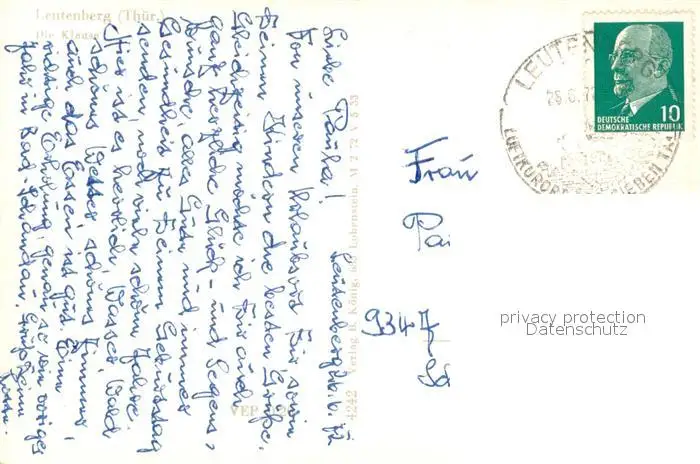 Leutenberg (Thür.)
Die Klause
Liebe Paula!
Leutenberg,
Von unseren Urlaubsort Dir sowie
Deinen Kindern die besten Grüße.
Gleichzeitig möchte ich Dir auch
ganz herzliche Glück- und Segens-
wünsche, alles Gute und immer
Gesundheit zu Deinem Geburtstag
senden, noch viele schöne Jahre.
Hier ist es herrlich, Wasser, Wald
schönes Wetter, schönes Zimmer,
und das Essen ist gut. Eine
richtige Erholung, genau so wie voriges
Jahr in Bad Schandau.
4242 Verlag H. König, 685 Lobenstein. M 2 72 V 5 33
VEB
LEUTEN
LUFTKURORT SIEBEN TÄ
10
DEUTSCHE
DEMOKRATISCHE REPUBLIK
Frau
Pai
9347
privacy protection
Datenschutz